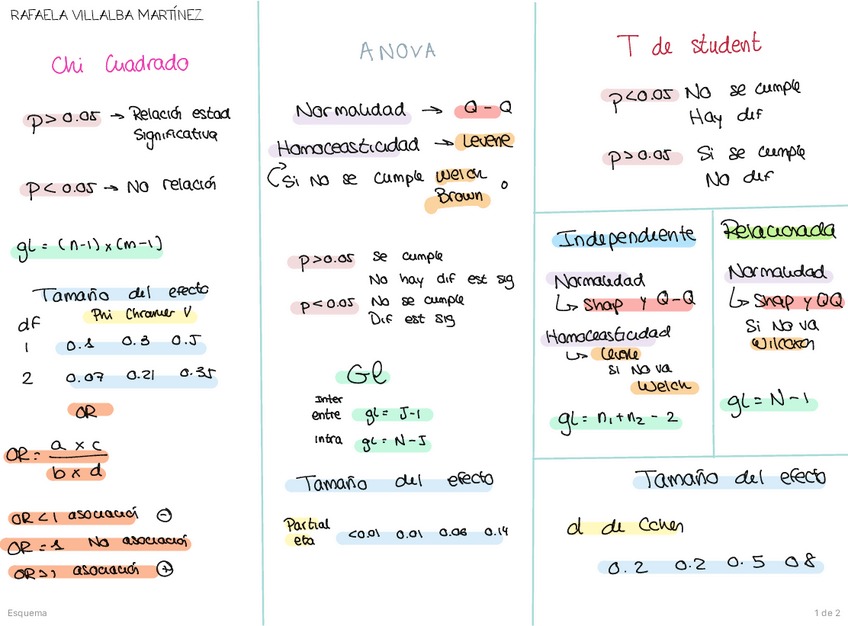 RAFAELA VILLALBA MARTÍNEZ
Chi Cuadrado
p > 0.05 → Relación estad
Significativa
p < 0.05 → No relación
gl = (n-1) x (m-1)
Tamaño del efecto
Phi Chramer V
df
1 0.1 0.3 0.5
2 0.07 0.21 0.35
OR
OR = a x c
b x d
OR < 1 asociación ⊖
OR = 1 No asociación
OR > 1 asociación ⊕
ANOVA
Normalidad → Q-Q
Homoceasticidad → Levene
Si No se cumple Welch o
Brown
p > 0.05 Se cumple
No hay dif est sig
p < 0.05 No se cumple
Dif est sig
Gl
Inter
entre gl = J-1
intra gl = N-J
Tamaño del efecto
Partial
eta <0.01 0.01 0.06 0.14
T de student
p<0.05 No se cumple
Hay dif
p>0.05 Si se cumple
No dif
Independiente
Normalidad
↳ Shap y Q-Q
Homoceasticidad
↳ Levene
Si No va
Welch
gl = n₁+n₂ - 2
Relacionada
Normalidad
↳ Shap y QQ
Si No va
Wilcoxon
gl = N-1
Tamaño del efecto
d de Cohen
0.2 0.2 0.5 0.8
Esquema
1 de 2